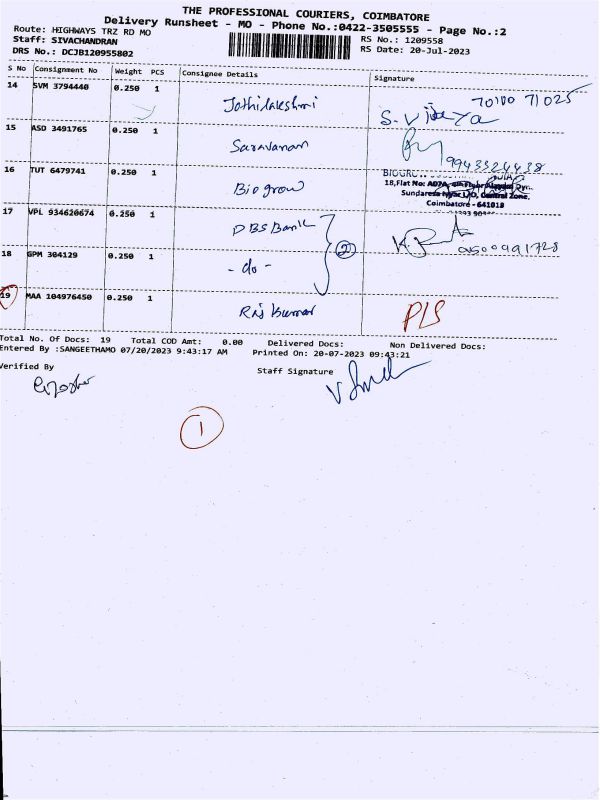 THE PROFESSIONAL COURIERS, COIMBATORE
Delivery Runsheet - MO - Phone No.:0422-3505555 - Page No.:2
Route: HIGHWAYS TRZ RD MO RS No.: 1209558
Staff: SIVACHANDRAN RS Date: 20-Jul-2023
DRS No.: DCJB120955802
S No Consignment No Weight PCS Consignee Details Signature
14 SVM 3794440 0.250 1 Jothilakshmi S. Vidya 70100 71025
15 ASD 3491765 0.250 1 Saravanan 9943324438
16 TUT 6479741 0.250 1 Biogrow
18,Flat No:
Coimbatore - 641018
17 VPL 934620674 0.250 1 DBS Bank 2
18 GPM 304129 0.250 1 - do -
19 MAA 104976450 0.250 1 Raj Kumar P/S
Total No. Of Docs: 19 Total COD Amt: 0.00 Delivered Docs: Non Delivered Docs:
Entered By :SANGEETHAMO 07/20/2023 9:43:17 AM Printed On: 20-07-2023 09:43:21
Verified By Staff Signature
1